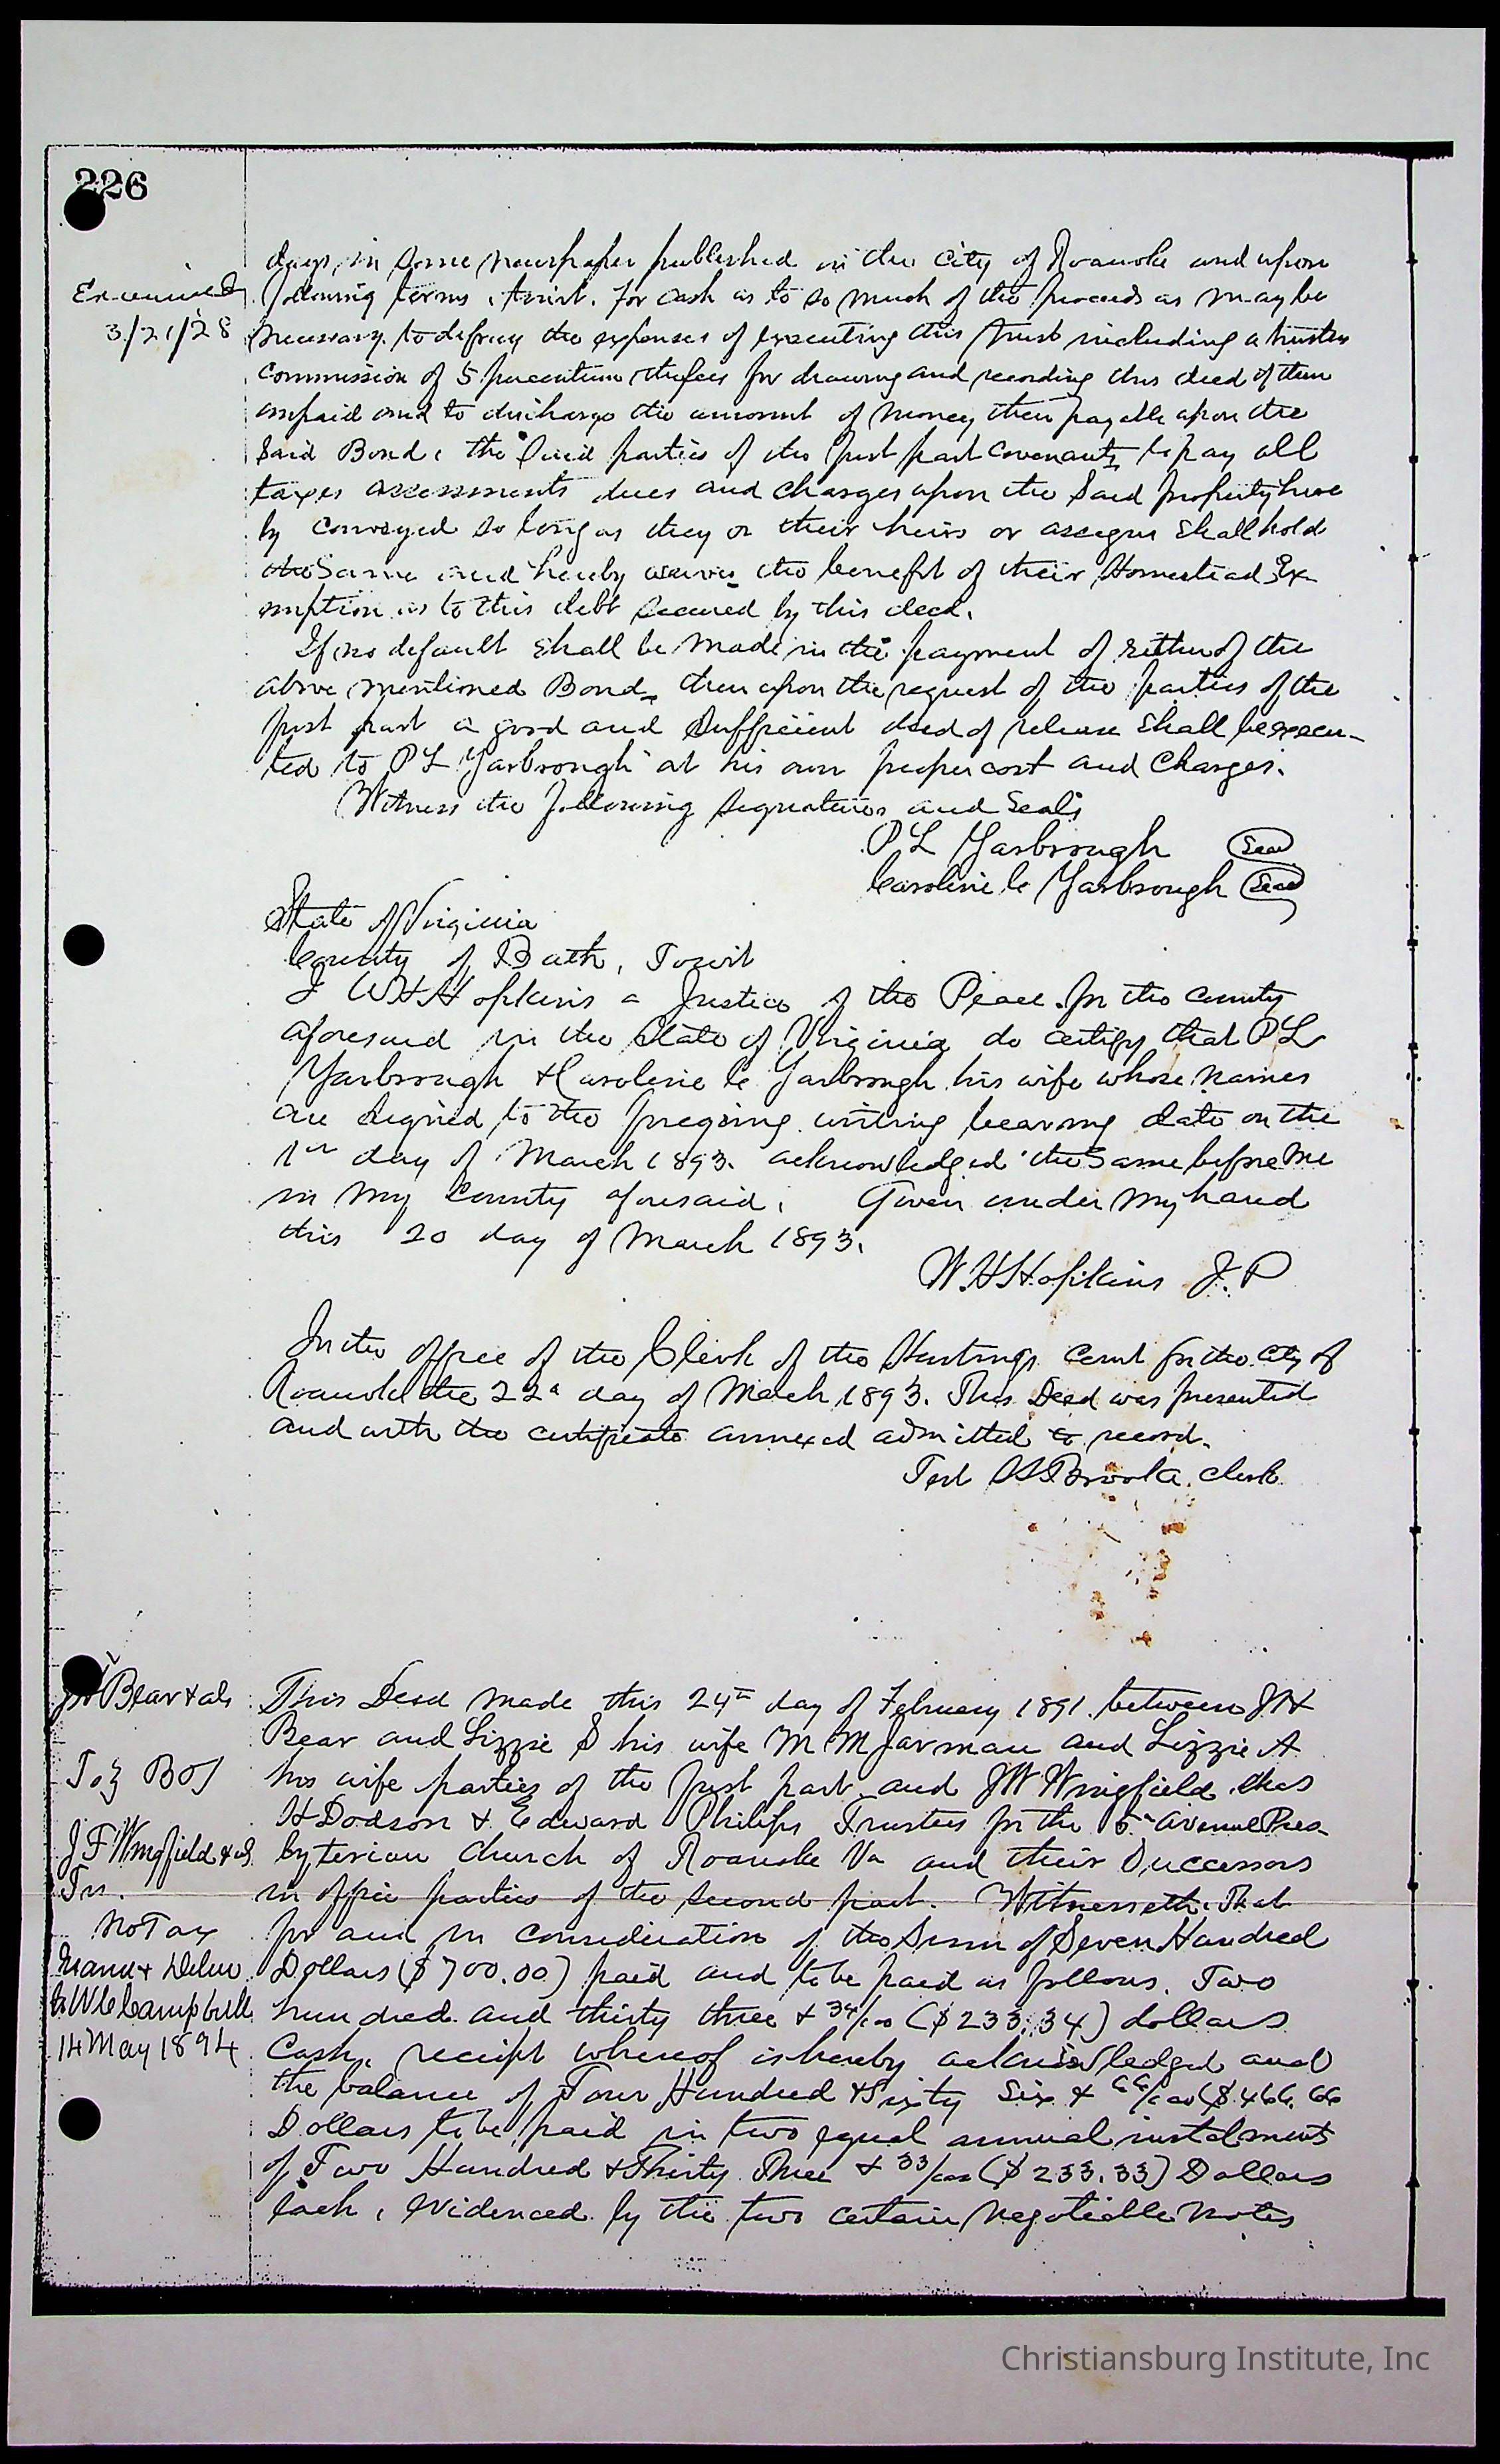 226
days, in some newspaper published in the City of Roanoke and upon
Examined
following terms, to wit. For cash as to so much of the proceeds as may be
3/21/28
necessary to defray the expenses of executing this trust including a trustees
Commission of 5 percentum, the fees for drawing and recording this deed if then
unpaid and to discharge the amount of money then payable upon the
Said Bond, the Said parties of the first part Covenants to pay all
taxes assessments dues and charges upon the Said property here
by Conveyed So long as they or their heirs or assigns Shall hold
the Same and hereby waives the benefit of their Homestead Ex
emption as to this debt Secured by this deed.
If no default Shall be Made in the payment of either of the
above mentioned Bond, then upon the request of the parties of the
first part a good and Sufficient deed of release Shall be execu-
ted to P L Yarbrough at his own proper cost and Charges.
Witness the following Signatures and Seals
P L Yarbrough Seal
Caroline C Yarbrough Seal
State of Virginia
County of Bath, Towit
I W H Hopkins a Justice of the Peace for the County
aforesaid in the State of Virginia do certify that P L
Yarbrough & Caroline C Yarbrough his wife whose names
are Signed to the foregoing writing bearing date on the
1st day of March 1893. acknowledged the Same before me
in My County aforesaid. Given under My hand
this 20 day of March 1893.
W H Hopkins J. P
In the office of the Clerk of the Hustings Court for the City of
Roanoke the 22d day of March, 1893. This Deed was presented
and with the certificate annexed admitted to record.
Test S S Brooke Clerk
J H Bear & als
This Deed made this 24th day of February 1891. between J H
Bear and Lizzie S his wife M M Jarman and Lizzie A
To } B & S
his wife parties of the first part and J W Wingfield Chas
H Dodson & Edward Philips Trustees for the 5th Avenue Pres-
J F Wingfield & als
byterian Church of Roanoke Va and their Successors
Trs.
in office parties of the Second part. Witnesseth: That
No Tax
for and in Consideration of the Sum of Seven Hundred
Dollars ($700.00) paid and to be paid as follows. Two
to W C Campbell
hundred and thirty three & 34/100 ($233.34) dollars
14 May 1894
Cash, receipt whereof is hereby acknowledged and
the balance of Four Hundred & Sixty Six & 66/100 ($466.66
Dollars to be paid in two equal annual instalments
of Two Hundred & Thirty Three & 33/100 ($233.33) Dollars
Each, Evidenced by the two certain Negotiable Notes
Christiansburg Institute, Inc